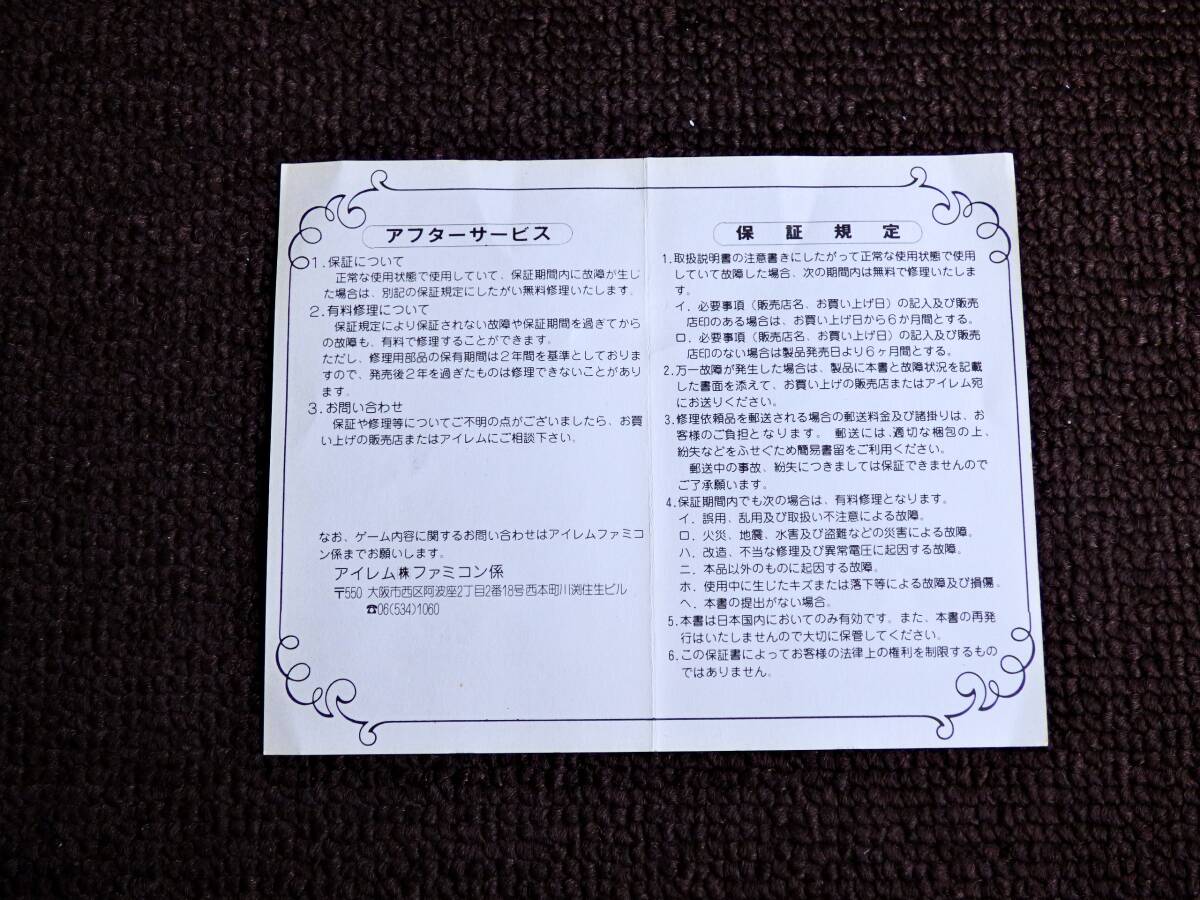 アフターサービス
1.保証について
正常な使用状態で使用していて、保証期間内に故障が生じ
た場合は、別記の保証規定にしたがい無料修理いたします。
2.有料修理について
保証規定により保証されない故障や保証期間を過ぎてから
の故障も、有料で修理することができます。
ただし、修理用部品の保有期間は2年間を基準としておりま
すので、発売後2年を過ぎたものは修理できないことがあり
ます。
3.お問い合わせ
保証や修理等についてご不明の点がございましたら、お買
い上げの販売店またはアイレムにご相談下さい。
なお、ゲーム内容に関するお問い合わせはアイレムファミコ
ン係までお願いします。
アイレム㈱ファミコン係
〒550 大阪市西区阿波座2丁目2番18号 西本町川渕住生ビル
☎06(534)1060
保証規定
1.取扱説明書の注意書きにしたがって正常な使用状態で使用
していて故障した場合、次の期間内は無料で修理いたしま
す。
イ．必要事項（販売店名、お買い上げ日）の記入及び販売
店印のある場合は、お買い上げ日から6か月間とする。
ロ．必要事項（販売店名、お買い上げ日）の記入及び販売
店印のない場合は製品発売日より6ヶ月間とする。
2.万一故障が発生した場合は、製品に本書と故障状況を記載
した書面を添えて、お買い上げの販売店またはアイレム宛
にお送りください。
3.修理依頼品を郵送される場合の郵送料金及び諸掛りは、お
客様のご負担となります。 郵送には、適切な梱包の上、
紛失などをふせぐため簡易書留をご利用ください。
郵送中の事故、紛失につきましては保証できませんので
ご了承願います。
4.保証期間内でも次の場合は、有料修理となります。
イ．誤用、乱用及び取扱い不注意による故障。
ロ．火災、地震、水害及び盗難などの災害による故障。
ハ．改造、不当な修理及び異常電圧に起因する故障。
ニ．本品以外のものに起因する故障。
ホ．使用中に生じたキズまたは落下等による故障及び損傷。
ヘ．本書の提出がない場合。
5.本書は日本国内においてのみ有効です。また、本書の再発
行はいたしませんので大切に保管してください。
6.この保証書によってお客様の法律上の権利を制限するもの
ではありません。